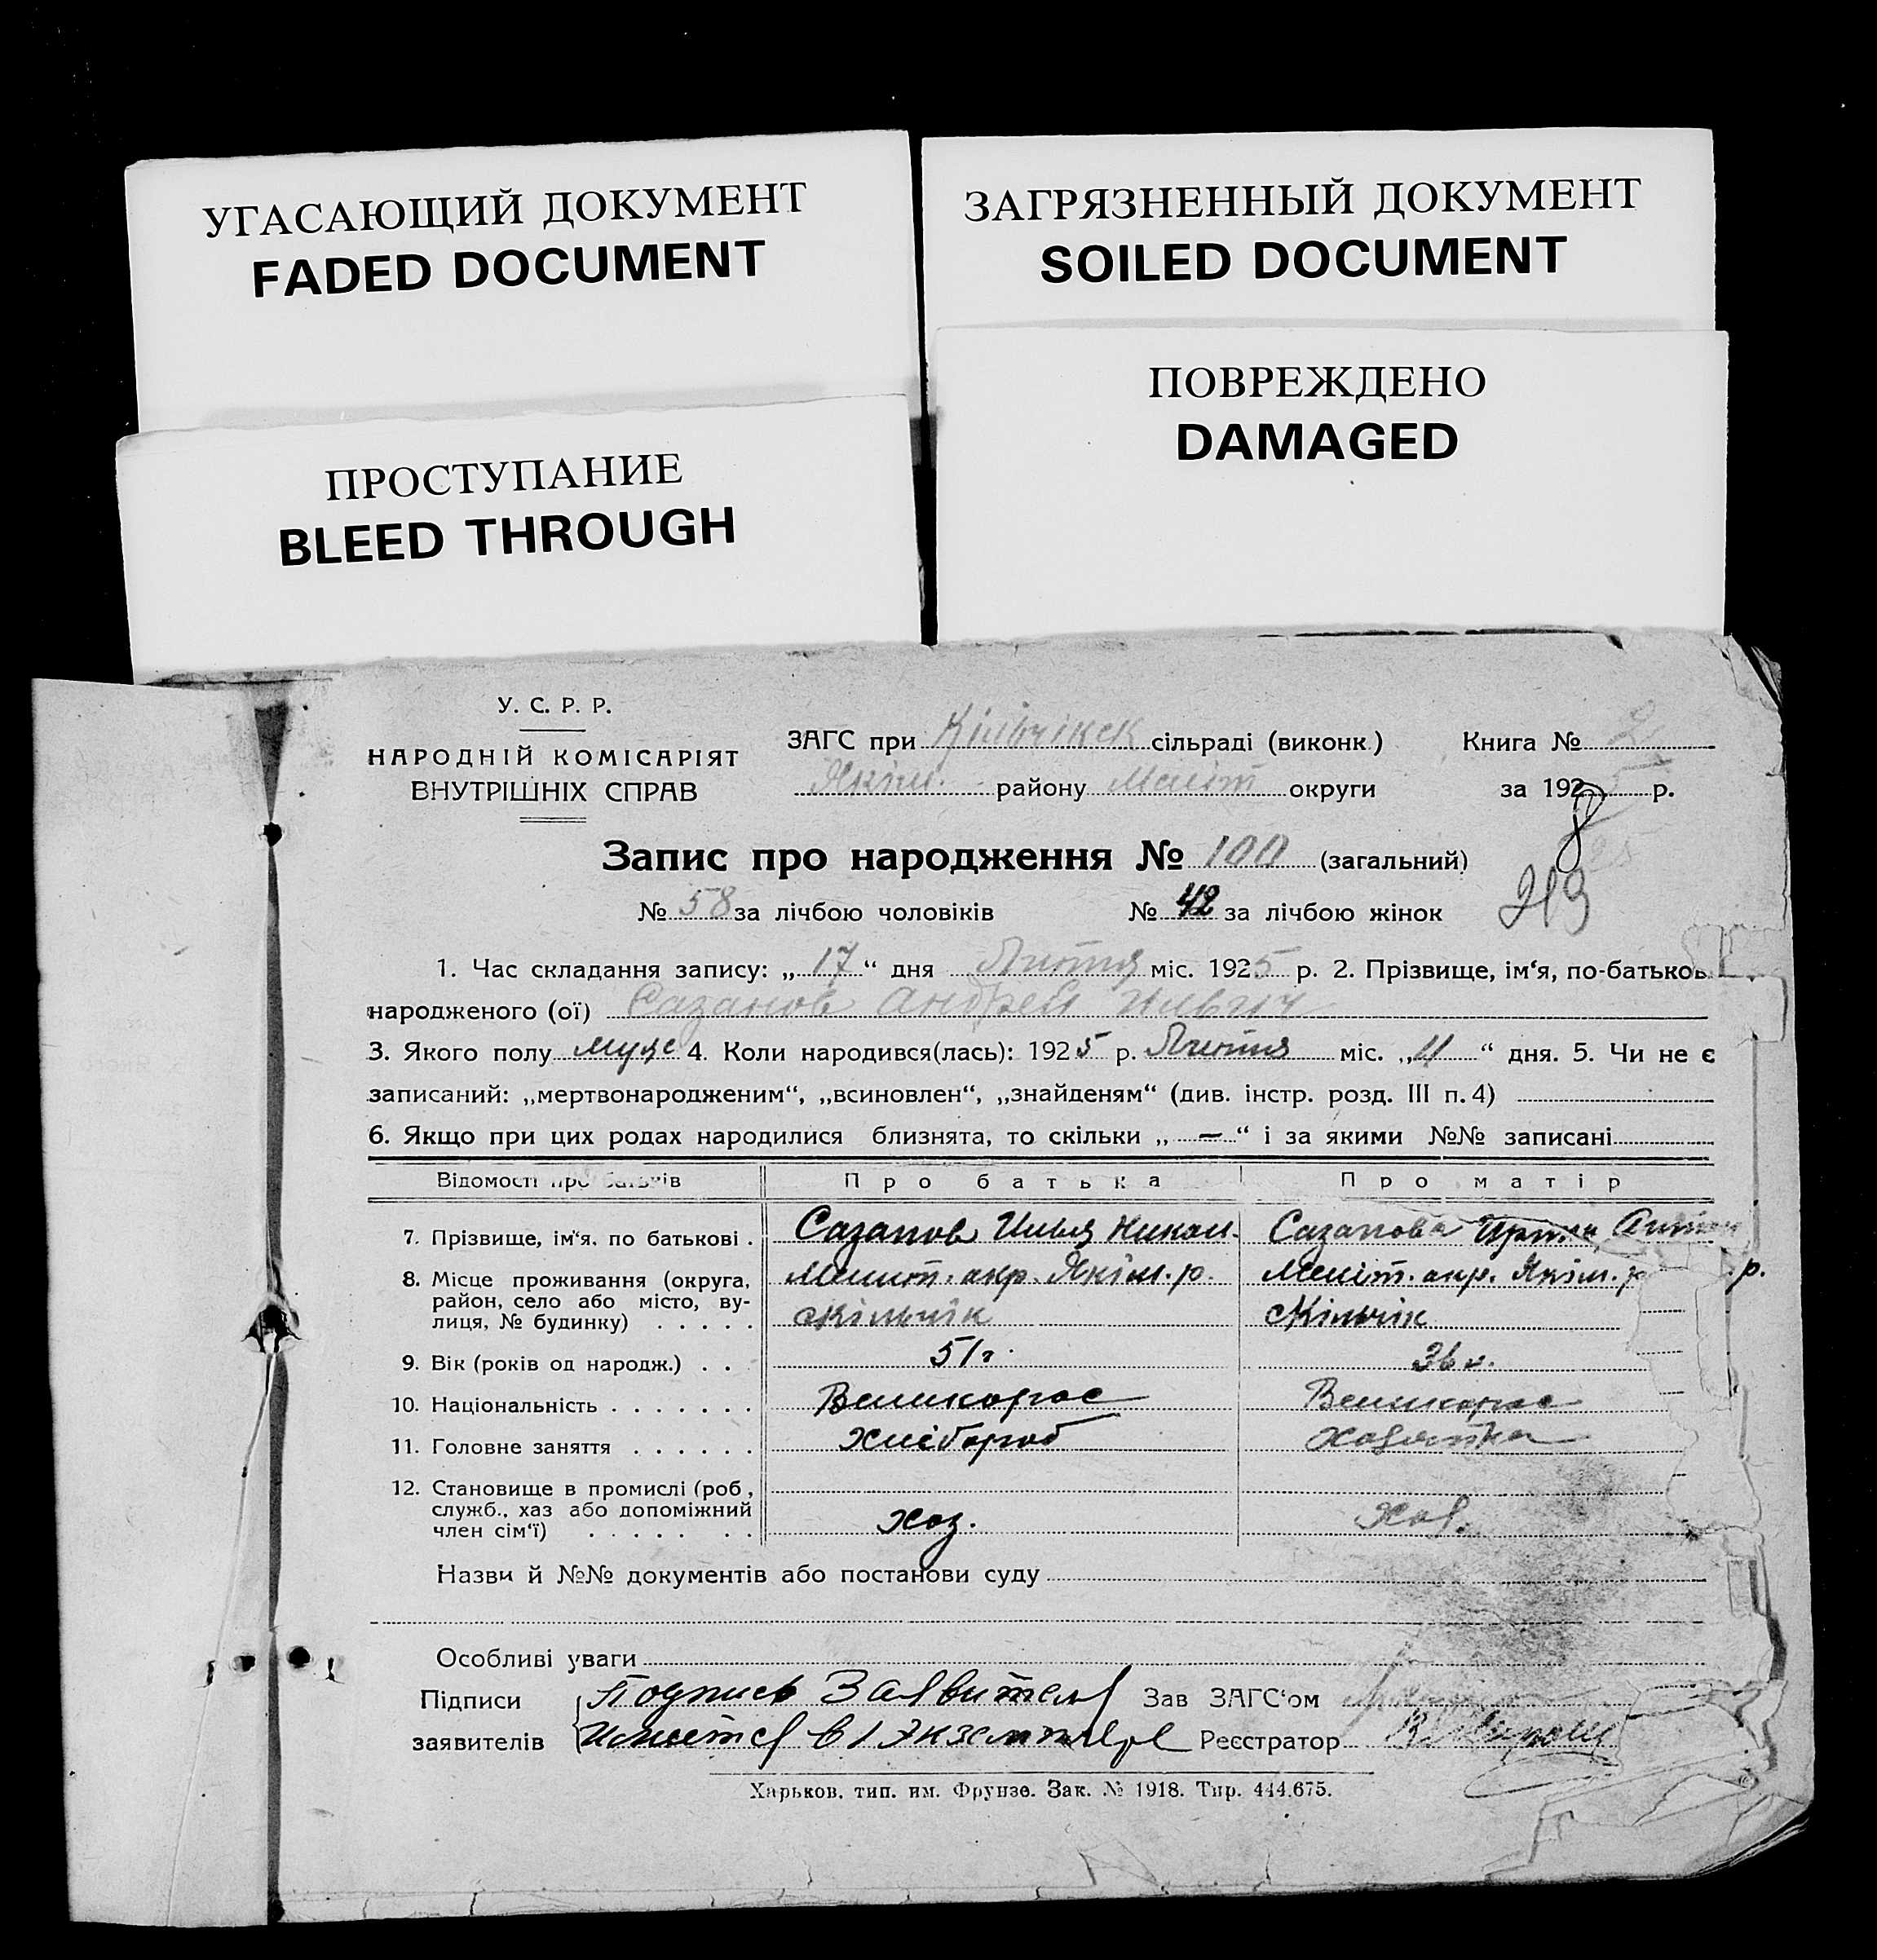 УГАСАЮЩИЙ ДОКУМЕНТ
FADED DOCUMENT
ЗАГРЯЗНЕННЫЙ ДОКУМЕНТ
SOILED DOCUMENT
ПРОСТУПАНИЕ
BLEED THROUGH
ПОВРЕЖДЕНО
DAMAGED
У. С. Р. Р.
НАРОДНІЙ КОМІСАРІЯТ
ВНУТРІШНІХ СПРАВ
ЗАГС при Кільчікск сільраді (виконк.) Книга № 2
Якім. району Меліт округи за 1925 р.
Запис про народження № 100 (загальний)
213
№ 58 за лічбою чоловіків № 42 за лічбою жінок
1. Час складання запису: „17“ дня Лютня міс. 1925 р. 2. Прізвище, ім‘я, по-батькові
народженого (ої) Сазанов Андрей Ильич
3. Якого полу муже 4. Коли народився(лась): 1925 р. Лютня міс. „11“ дня. 5. Чи не є
записаний: „мертвонародженим“, „всиновлен“, „знайденям“ (див. інстр. розд. III п. 4)
6. Якщо при цих родах народилися близнята, то скільки „—“ і за якими №№ записані
Відомості про батьків Про батька Про матір
7. Прізвище, ім‘я, по батькові . Сазанов Илья Никол. Сазанова
8. Місце проживання (округа, Меліт. окр. Якім. р. Меліт. окр. Якім. р.
район, село або місто, ву-
лиця, № будинку) . . . . . с Кільчік с Кільчік
9. Вік (років од народж.) . . 51 г. 36 л.
10. Національність . . . . . . . Великорос Великорос
11. Головне заняття . . . . . . Хлібороб Хозяйка
12. Становище в промислі (роб.,
служб., хаз або допоміжний
член сім‘ї) . . . . . . . Хоз. Хоз.
Назви й №№ документів або постанови суду
Особливі уваги
Підписи Подпись Заявителя Зав ЗАГС‘ом
заявителів Имеется в 1 Экземпляре Реєстратор
Харьков, тип. им. Фрунзе. Зак. № 1918. Тир. 444.675.